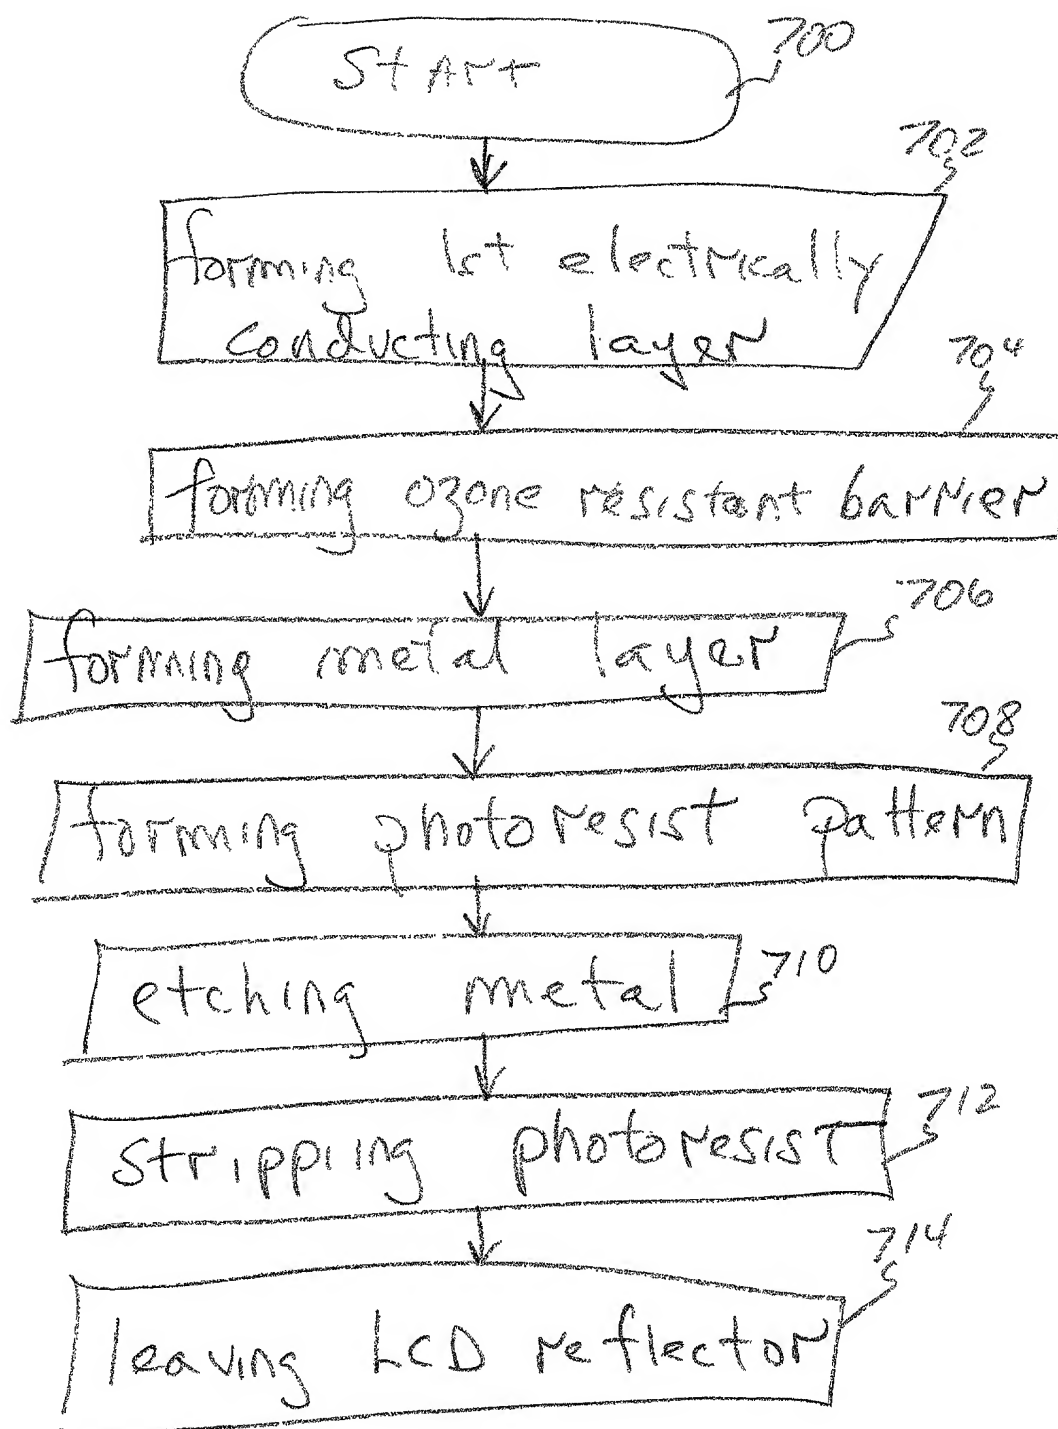 Start
700
702
forming 1st electrically
conducting layer
704
forming ozone resistant barrier
706
forming metal layer
708
forming photoresist pattern
etching metal
710
712
stripping photoresist
714
leaving LCD reflector